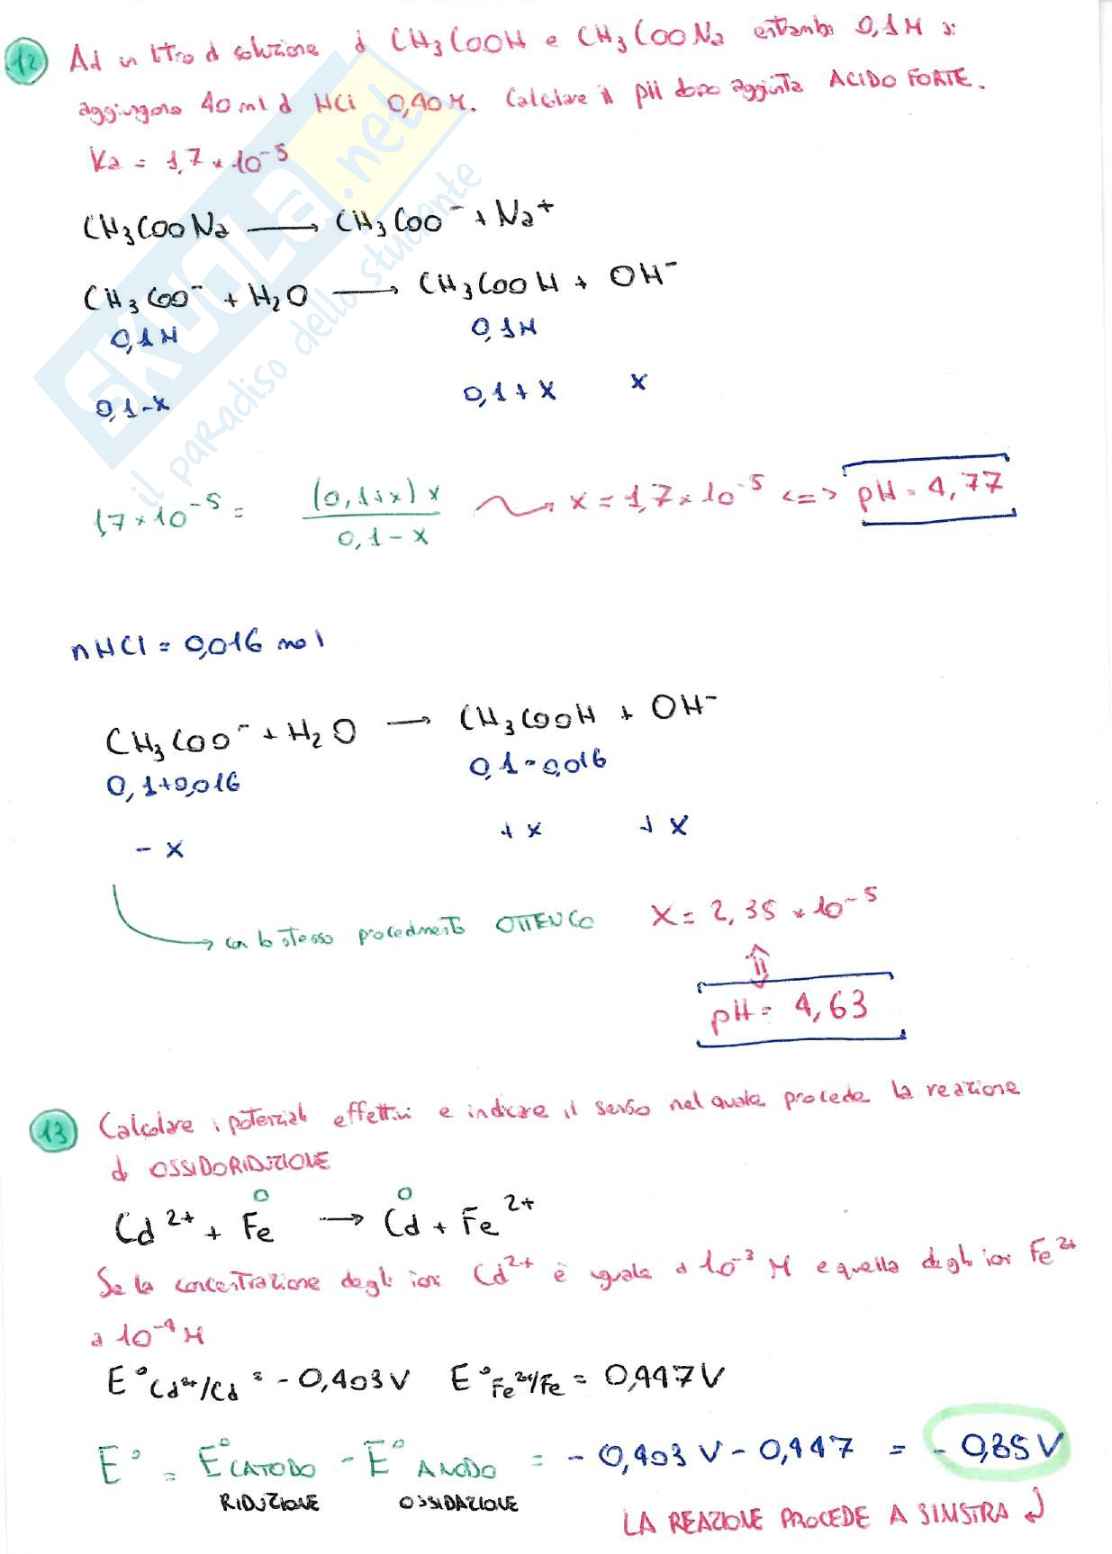 12 Ad un litro di soluzione di CH3COOH e CH3COONa entrambi 0,1M si
aggiungono 40 ml di HCl 0,40 M. Calcolare il pH dopo aggiunta ACIDO FORTE.
Ka = 1,7 × 10⁻⁵
CH3COONa → CH3COO⁻ + Na⁺
CH3COO⁻ + H2O → CH3COOH + OH⁻
0,1M 0,1M
0,1-x 0,1+x x
1,7×10⁻⁵ = (0,1+x)x / 0,1-x x = 1,7×10⁻⁵ <=> pH = 4,77
nHCl = 0,016 mol
CH3COO⁻ + H2O → CH3COOH + OH⁻
0,1+0,016 0,1-0,016
-x +x +x
→ con lo stesso procedimento OTTENGO x = 2,35 × 10⁻⁵
pH = 4,63
13 Calcolare i potenziali effettivi e indicare il senso nel quale procede la reazione
di OSSIDORIDUZIONE
0 0
Cd²⁺ + Fe → Cd + Fe²⁺
Se la concentrazione degli ioni Cd²⁺ è uguale a 10⁻³ M e quella degli ioni Fe²⁺
a 10⁻⁴ M
E°Cd²⁺/Cd = -0,403V E°Fe²⁺/Fe = 0,447V
E° = E°CATODO - E°ANODO = -0,403 V - 0,447 = -0,85V
RIDUZIONE OSSIDAZIONE
LA REAZIONE PROCEDE A SINISTRA ↲
SKUOLA.net
il paradiso dello studente